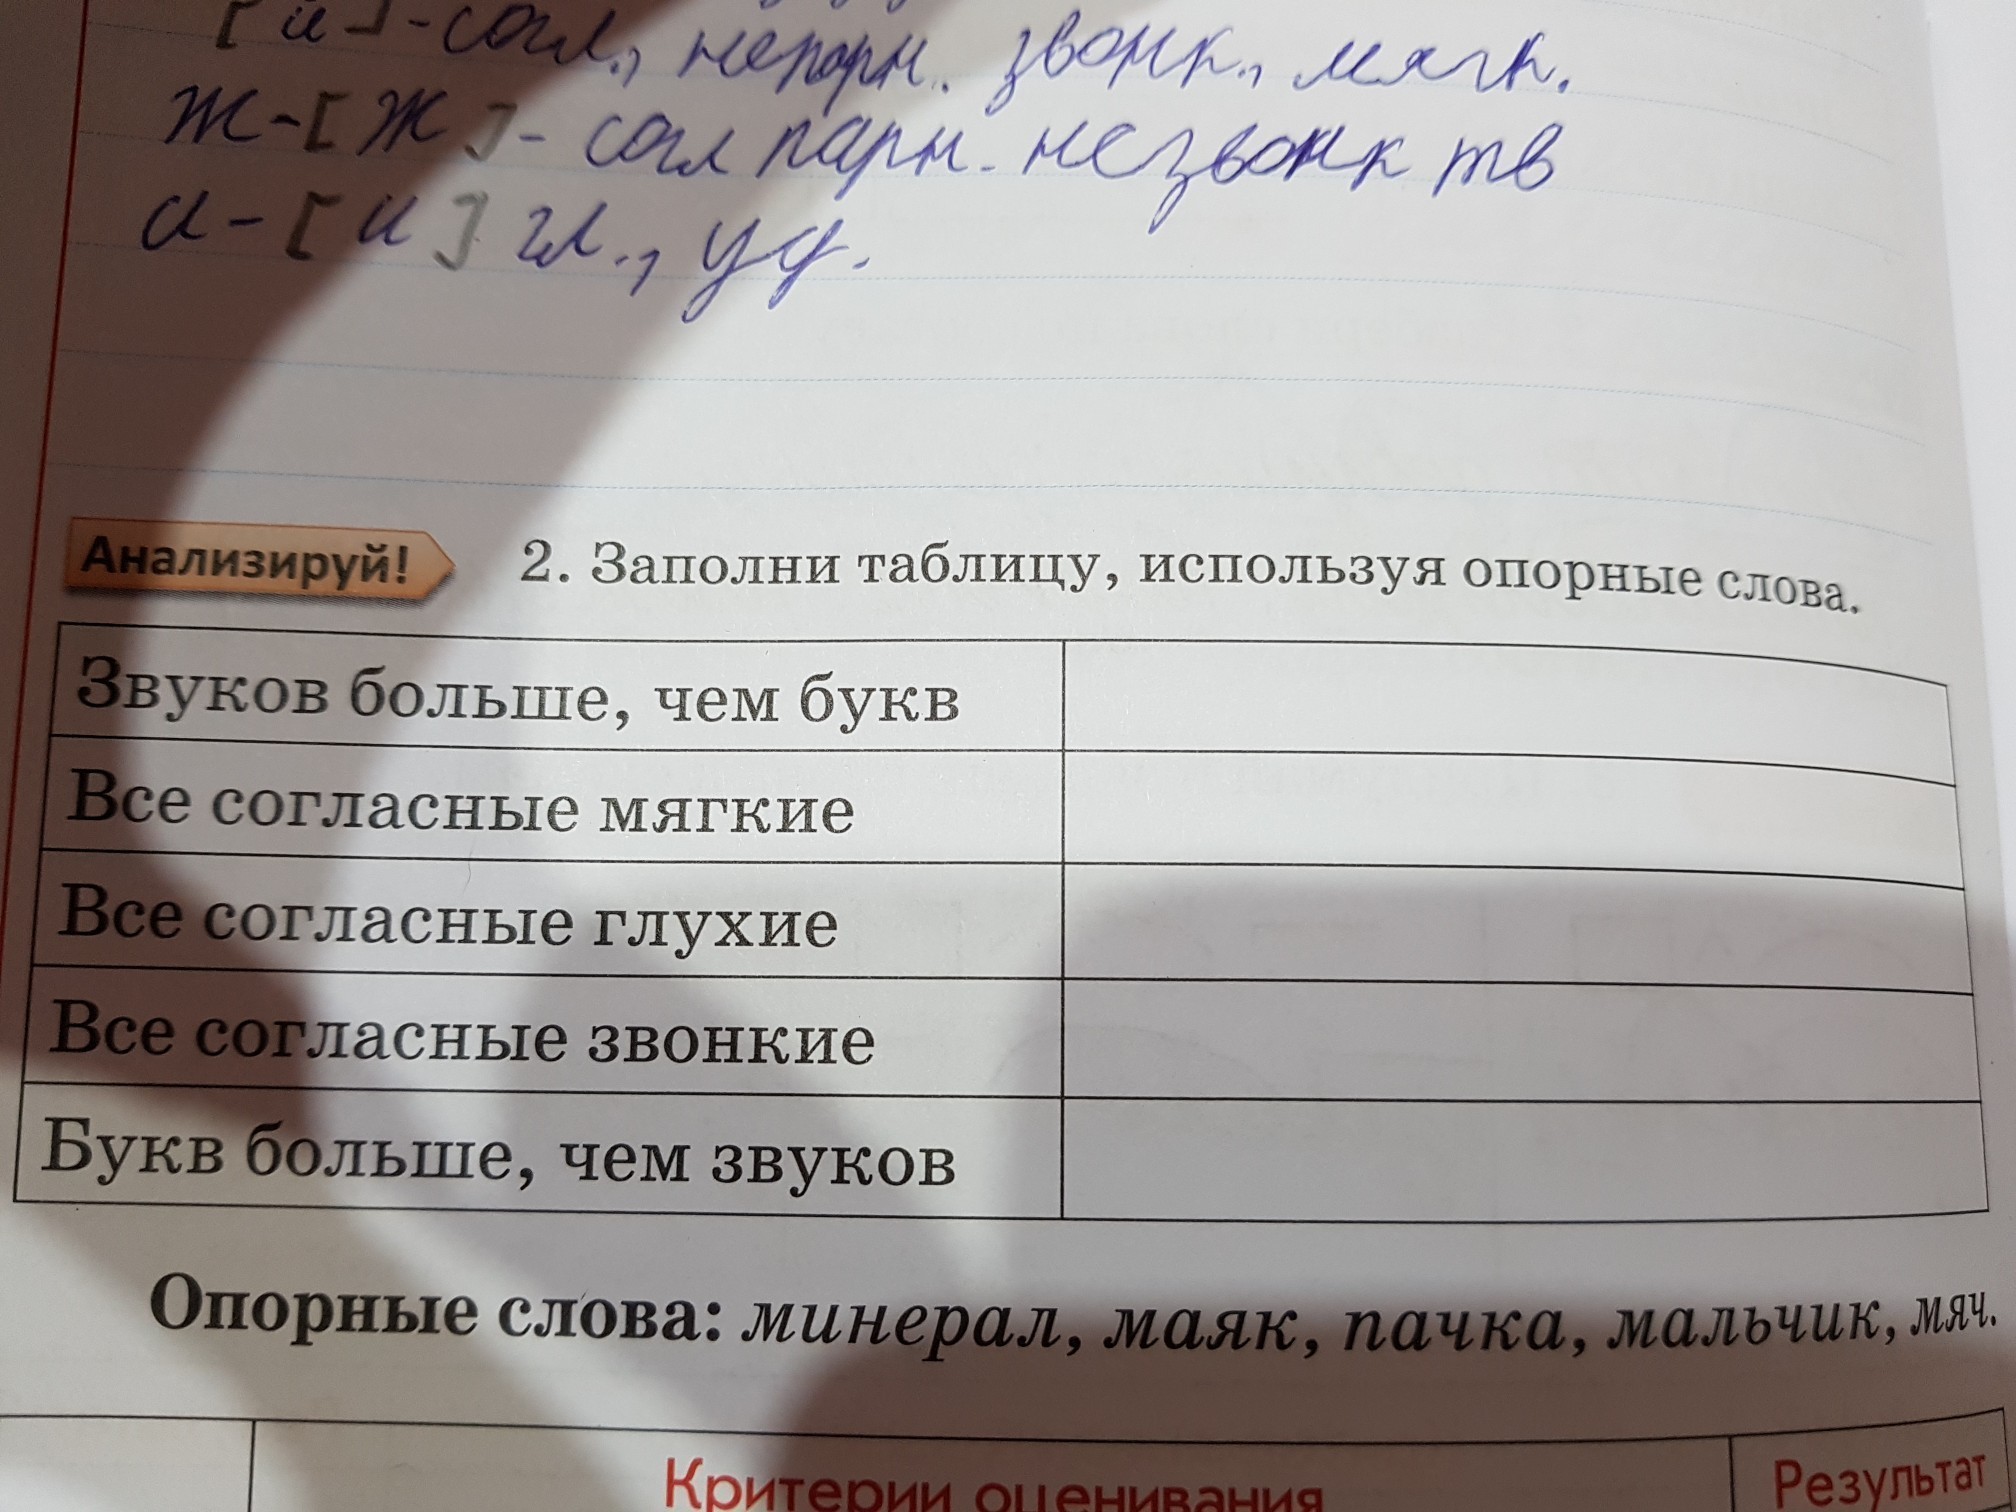 [й]-согл., непарн. звонк., мягк.
ж-[ж]- согл парн. незвонк тв
и-[и] гл., уд.
Анализируй! 2. Заполни таблицу, используя опорные слова.
Звуков больше, чем букв
Все согласные мягкие
Все согласные глухие
Все согласные звонкие
Букв больше, чем звуков
Опорные слова: минерал, маяк, пачка, мальчик, мяч.
Критерии оценивания Результат